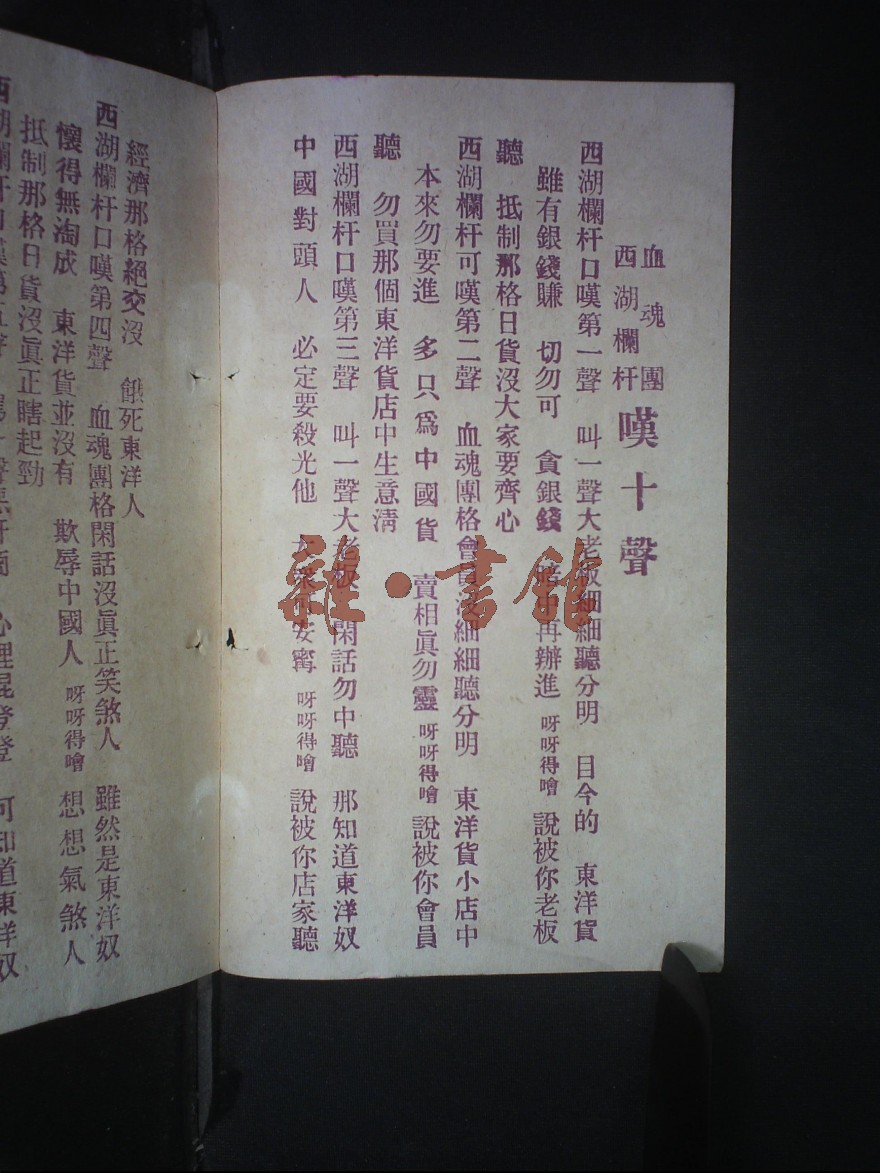 血魂團
西湖欄杆
嘆十聲
西湖欄杆口嘆第一聲 叫一聲大老板細細聽分明 目今的 東洋貨
雖有銀錢賺 切勿可 貪銀錢 暗中再辦進 呀呀得噲 說被你老板
聽 抵制那格日貨沒大家要齊心
西湖欄杆可嘆第二聲 血魂團格會員沒細細聽分明 東洋貨小店中
本來勿要進 多只爲中國貨 賣相眞勿靈 呀呀得噲 說被你會員
聽 勿買那個東洋貨店中生意淸
西湖欄杆口嘆第三聲 叫一聲大老板 閑話勿中聽 那知道東洋奴
中國對頭人 必定要殺光他 大家可安寗 呀呀得噲 說被你店家聽
經濟那格絕交沒 餓死東洋人
西湖欄杆口嘆第四聲 血魂團格閑話沒眞正笑煞人 雖然是東洋奴
懷得無淘成 東洋貨並沒有 欺辱中國人 呀呀得噲 想想氣煞人
抵制那格日貨沒眞正瞎起勁
西湖欄杆口嘆第五聲 罵一聲 心裡昆登登 可知道東洋奴
雜·書館